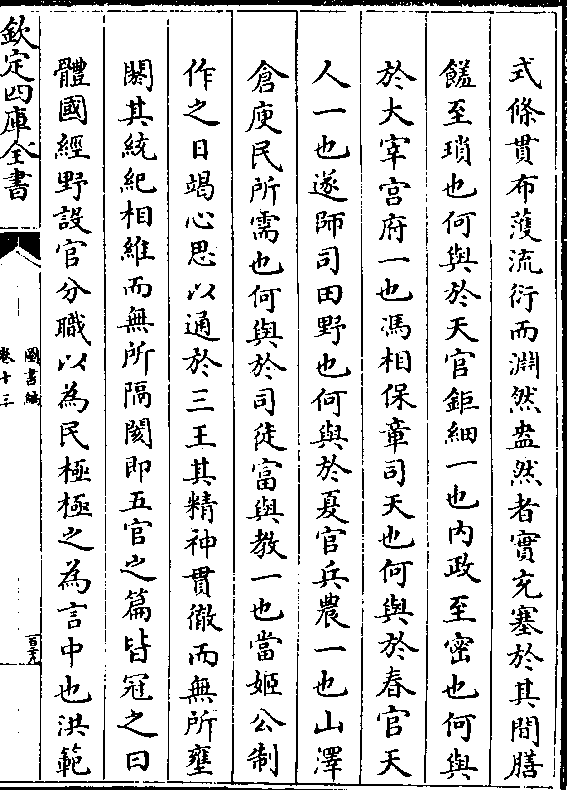 式條貫布濩流衍而淵然盎然者實充塞於其間膳
饈至瑣也何與於天官鉅細一也内政至密也何與
於大宰宫府一也馮相保章司天也何與於春官天
人一也遂師司田野也何與於夏官兵農一也山澤
倉庾民所需也何與於司徒富與教一也當姬公制
作之日竭心思以通於三王其精神貫徹而無所壅
閼其統紀相維而無所隔閡即五官之篇皆冠之曰
體國經野設官分職以為民極極之為言中也洪範
欽定四庫全書
圖書編
卷十三